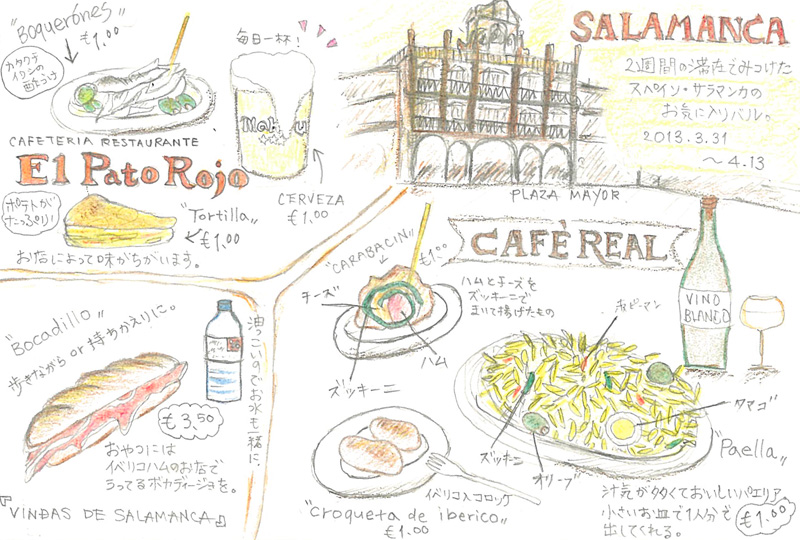 "Boquerónes"
€1.00
カタクチ
イワシの
酢づけ
毎日一杯!
CERVEZA
€1.00
CAFETERIA RESTAURANTE
El Pato Rojo
ポテトが
たっぷり!
"Tortilla"
€1.00
お店によって味がちがいます。
SALAMANCA
2週間の滞在でみつけた
スペイン・サラマンカの
お気に入りバル。
2013.3.31
～4.13
PLAZA MAYOR
CAFÈ REAL
"CARABACIN"
€1.00
チーズ
ハム
ズッキーニ
ハムとチーズを
ズッキーニで
まいて揚げたもの
VINO
BLANCO
赤ピーマン
タマゴ
ズッキーニ
オリーブ
"Paella"
汁気が多くておいしいパエリア
小さいお皿で1人分で
出してくれる。
€1.00
イベリコ入コロッケ
"Croqueta de iberico"
€1.00
"Bocadillo"
歩きながら or 持ちかえりに。
油っこいのでお水も一緒に。
€3.50
おやつには
イベリコハムのお店で
うってるボカディージョを。
『VIANDAS DE SALAMANCA』